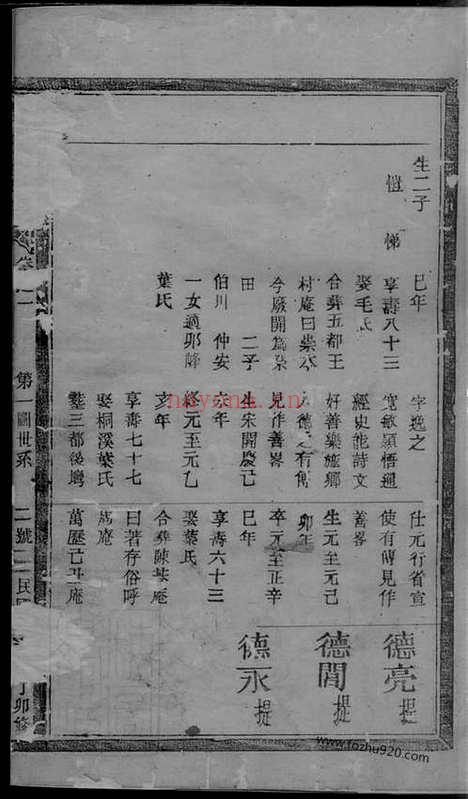 生二子
愷 悌
巳年
享壽八十三
娶毛氏
合葬五都王
村庵曰崇
今廢開為
田 二子
伯川 仲安
一女適
葉氏
字逸之
寬敏穎悟通
經史能詩文
好善樂施鄉
德之有傳
見作善畧
生宋開慶己
年
終元至元乙
亥年
享壽七十七
娶桐溪葉氏
塟三都後塢
仕元行省宣
使有傳見作
善畧
生元至元己
卯年
卒元至正辛
巳年
享壽六十三
娶葉氏
合葬陳庵
曰著存俗呼
庵
萬歷己丑庵
德亮 提
德閒 提
德永 提
卷一
第一圖世系
二號
民
丁卯修
nayona.cn
www.fozhu920.com